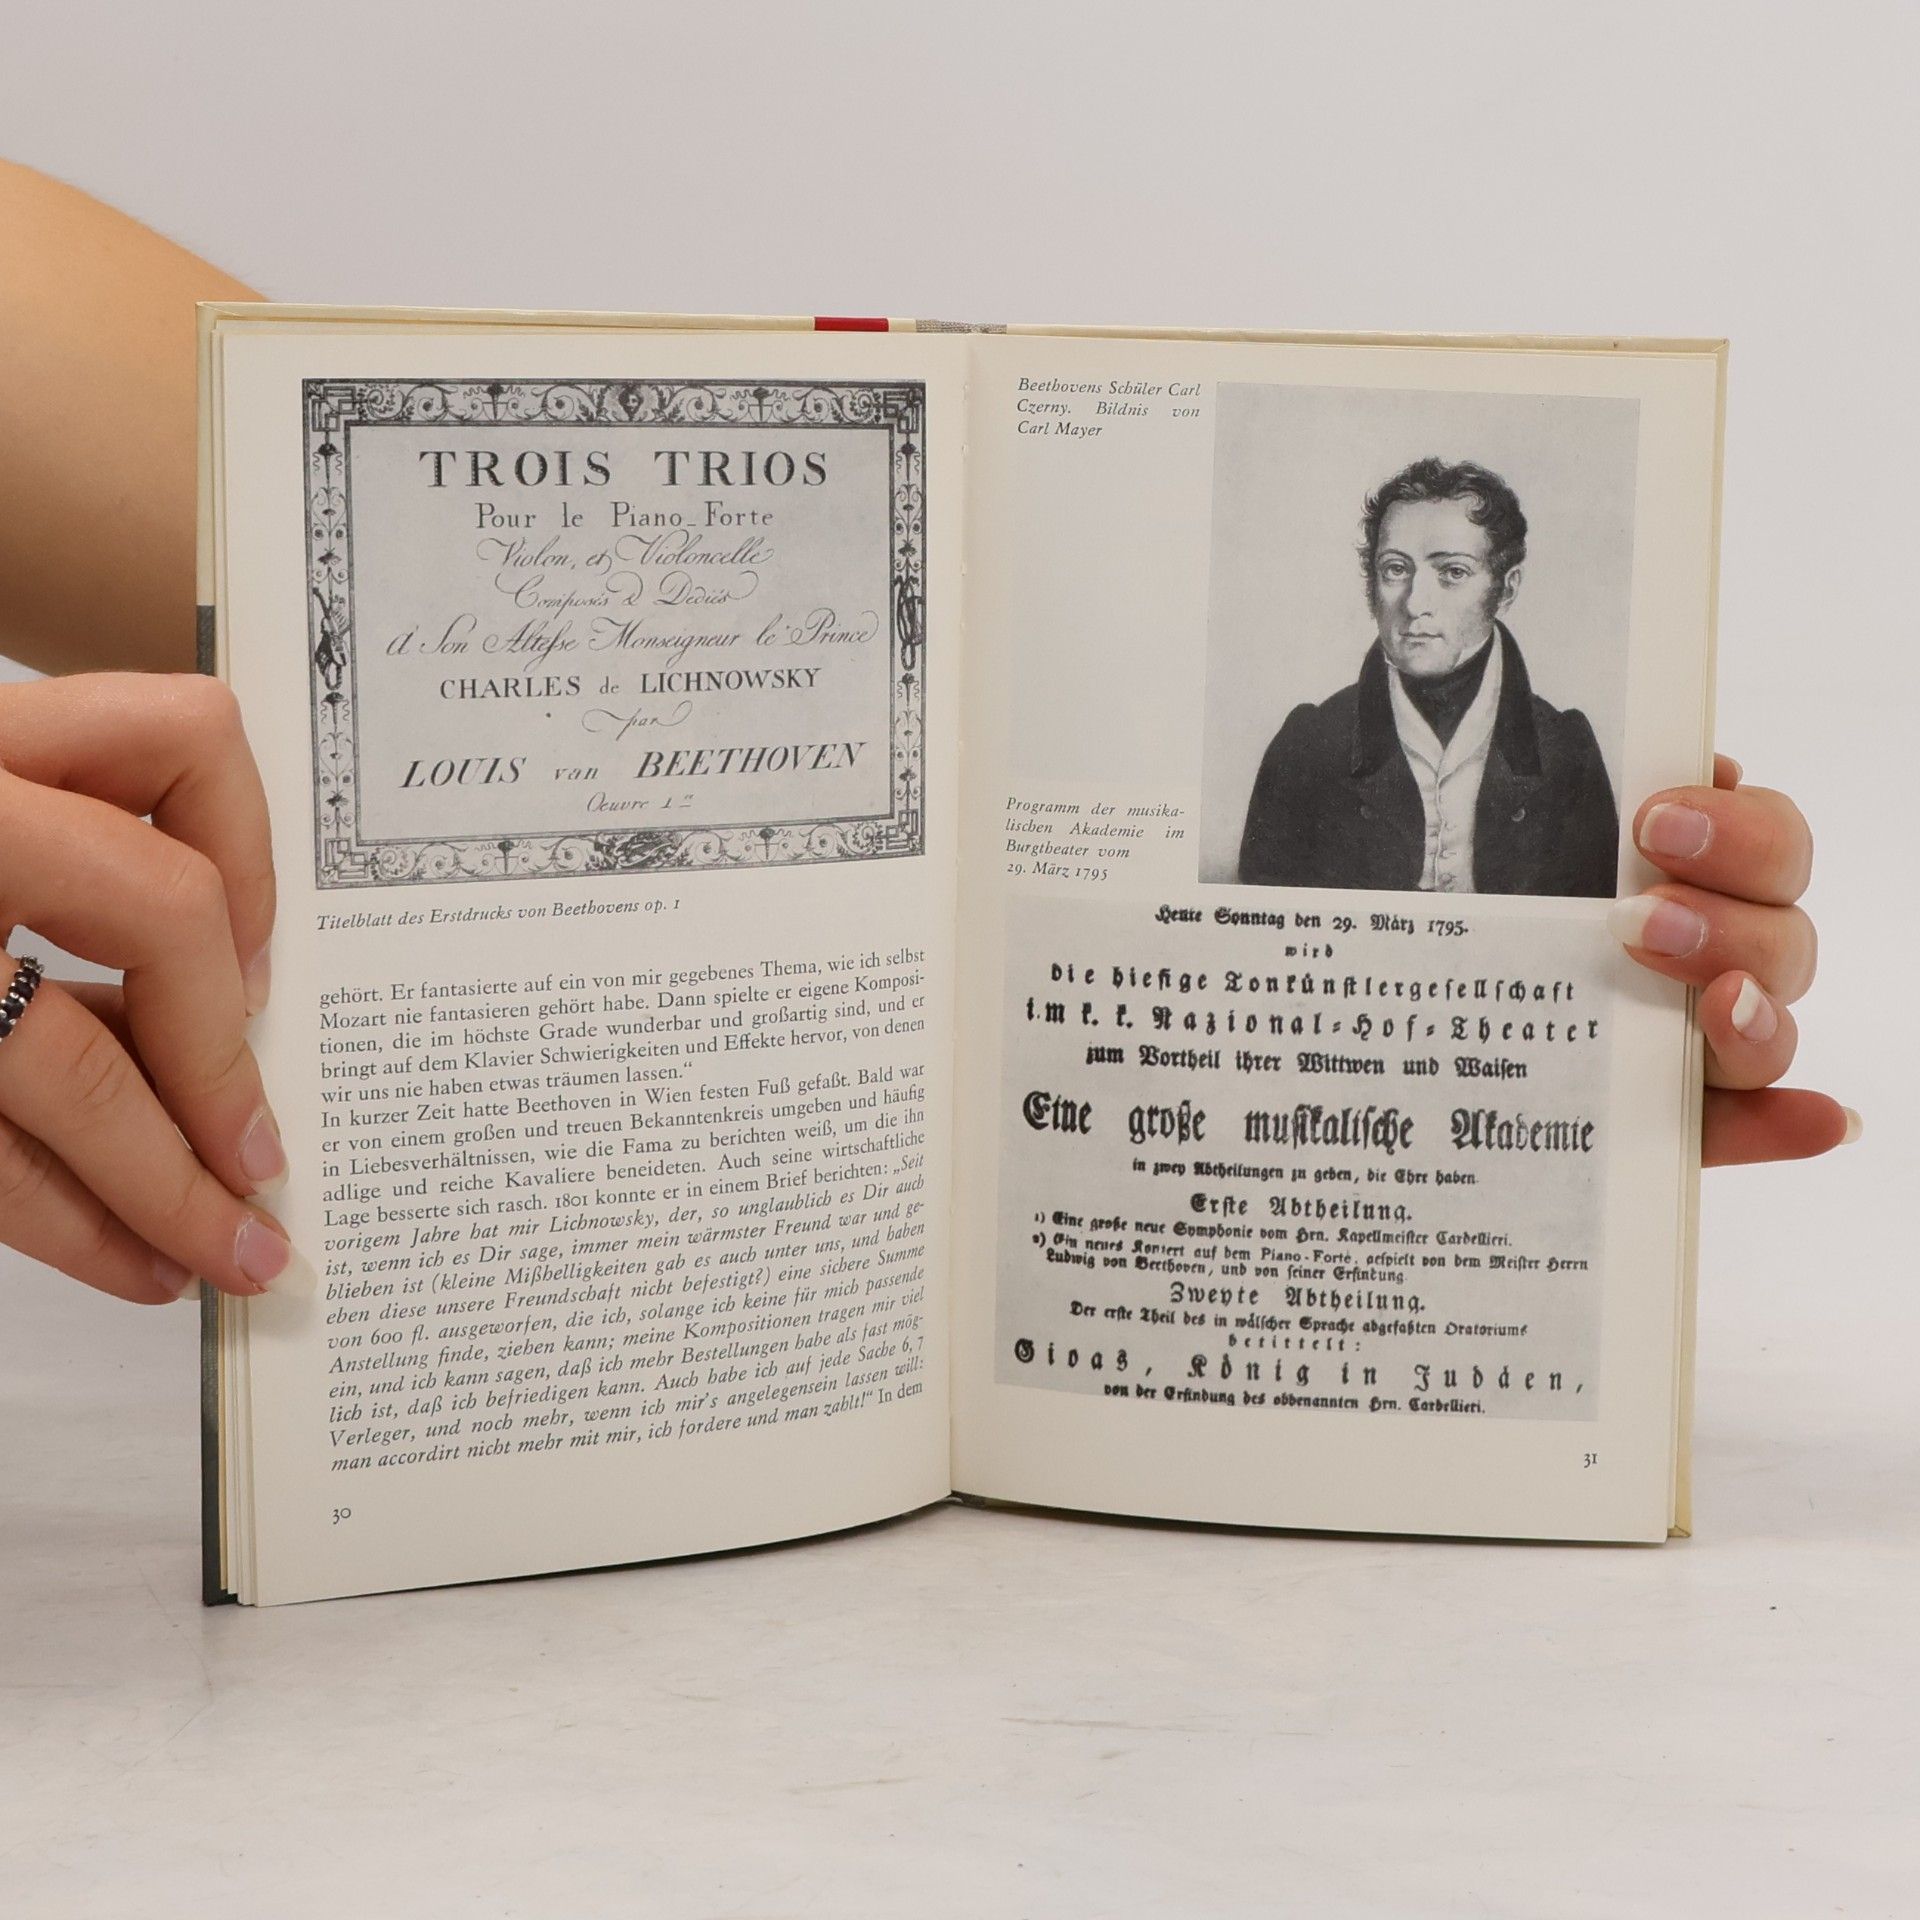 TROIS TRIOS
Pour le Piano_Forte
Violon, et Violoncelle
Composés & Dediés
à Son Altesse Monseigneur le Prince
CHARLES de LICHNOWSKY
par
LOUIS van BEETHOVEN
Oeuvre 1
Titelblatt des Erstdrucks von Beethovens op. 1
gehört. Er fantasierte auf ein von mir gegebenes Thema, wie ich selbst
Mozart nie fantasieren gehört habe. Dann spielte er eigene Komposi-
tionen, die im höchste Grade wunderbar und großartig sind, und er
bringt auf dem Klavier Schwierigkeiten und Effekte hervor, von denen
wir uns nie haben etwas träumen lassen.“
In kurzer Zeit hatte Beethoven in Wien festen Fuß gefaßt. Bald war
er von einem großen und treuen Bekanntenkreis umgeben und häufig
in Liebesverhältnissen, wie die Fama zu berichten weiß, um die ihn
adlige und reiche Kavaliere beneideten. Auch seine wirtschaftliche
Lage besserte sich rasch. 1801 konnte er in einem Brief berichten: „Seit
vorigem Jahre hat mir Lichnowsky, der, so unglaublich es Dir auch
ist, wenn ich es Dir sage, immer mein wärmster Freund war und ge-
blieben ist (kleine Mißhelligkeiten gab es auch unter uns, und haben
eben diese unsere Freundschaft nicht befestigt?) eine sichere Summe
von 600 fl. ausgeworfen, die ich, solange ich keine für mich passende
Anstellung finde, ziehen kann; meine Kompositionen tragen mir viel
ein, und ich kann sagen, daß ich mehr Bestellungen habe als fast mög-
lich ist, daß ich befriedigen kann. Auch habe ich auf jede Sache 6, 7
Verleger, und noch mehr, wenn ich mir's angelegensein lassen will:
man accordirt nicht mehr mit mir, ich fordere und man zahlt!“ In dem
30
Beethovens Schüler Carl
Czerny. Bildnis von
Carl Mayer
Programm der musika-
lischen Akademie im
Burgtheater vom
29. März 1795
Heute Sonntag den 29. März 1795.
wird
die hiesige Tonkünstlergesellschaft
im k. k. Nazional-Hof-Theater
zum Vortheil ihrer Wittwen und Waisen
Eine große musikalische Akademie
in zwey Abtheilungen zu geben, die Ehre haben.
Erste Abtheilung.
1) Eine große neue Symphonie vom Hrn. Kapellmeister Cardellieri.
2) Ein neues Konzert auf dem Piano-Forte, gespielt von dem Meister Herrn
Ludwig von Beethoven, und von seiner Erfindung.
Zweyte Abtheilung.
Der erste Theil des in wälscher Sprache abgefaßten Oratoriums
betittelt:
Gioas, König in Judäen,
von der Erfindung des obbenannten Hrn. Cardellieri.
31